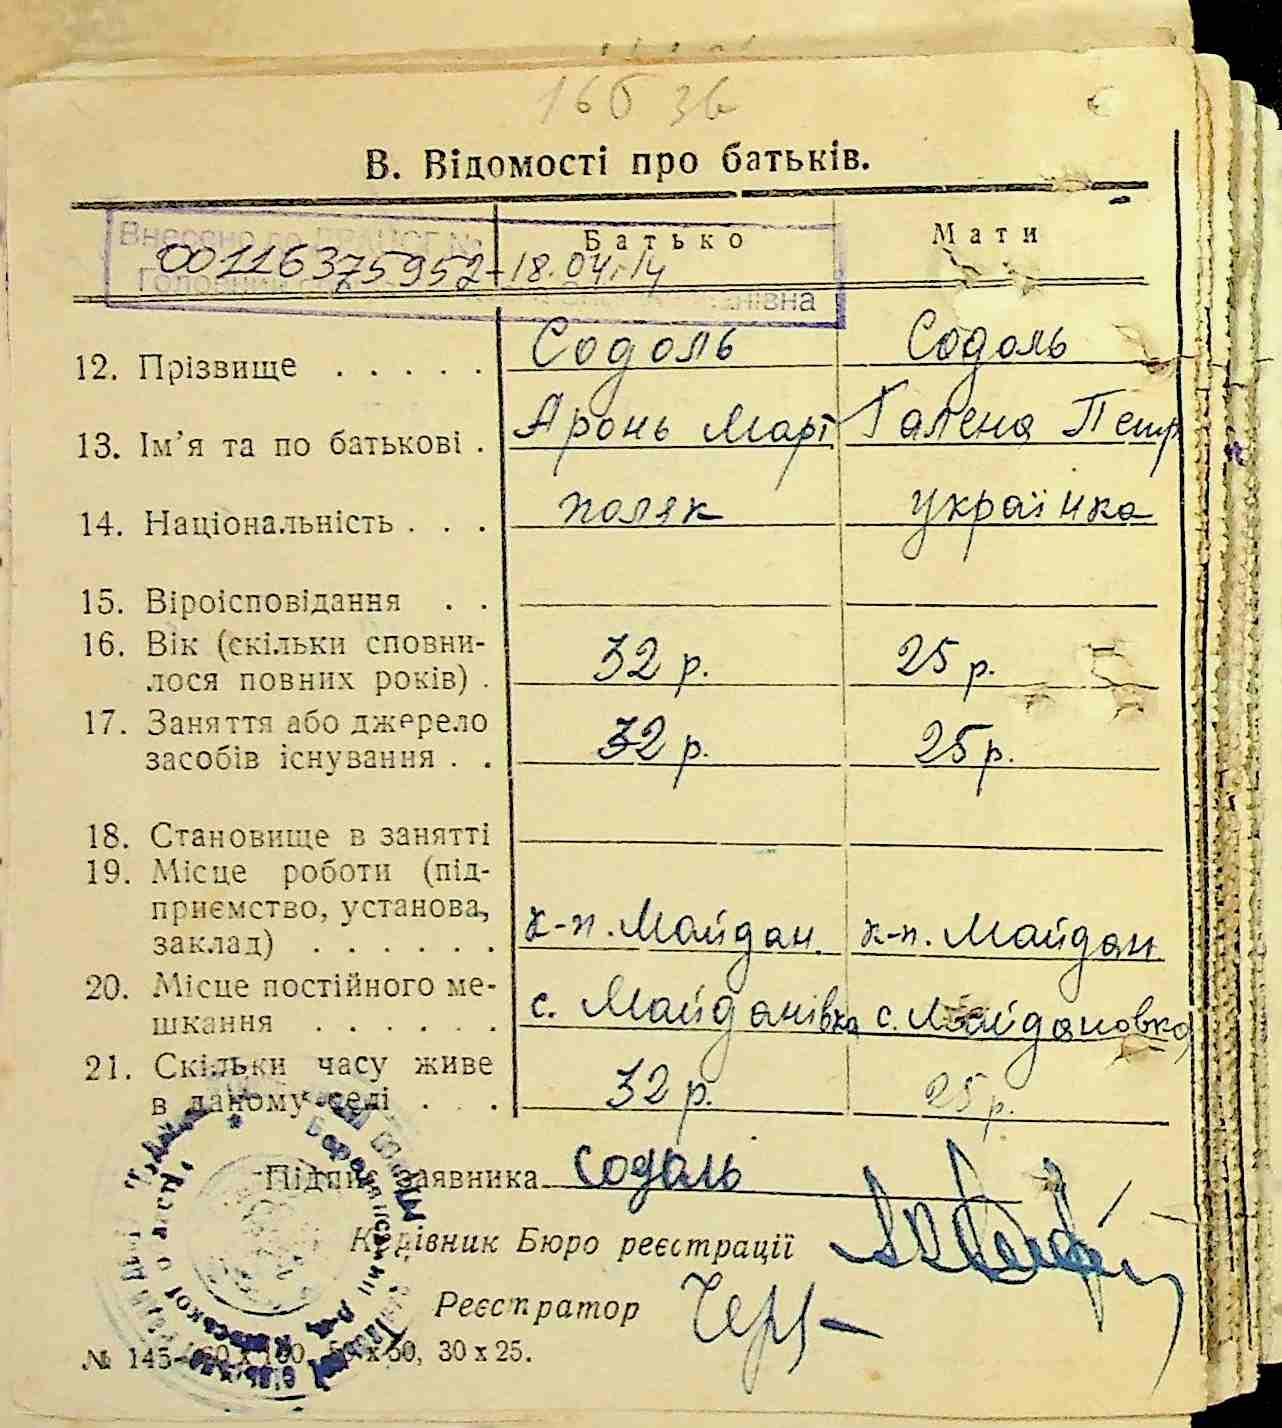 166 зв
В. Відомості про батьків.
Внесено до ДРАЦСГ №
00116375952-18.04.14
Батько Мати
12. Прізвище . . . . . Содоль Содоль
13. Ім'я та по батькові . Аронь Март Галена Петр
14. Національність . . . поляк українка
15. Віроісповідання . .
16. Вік (скільки сповни-
лося повних років) . 32 р. 25 р.
17. Заняття або джерело
засобів існування . . 32 р. 25 р.
18. Становище в занятті
19. Місце роботи (під-
приємство, установа,
заклад) . . . . . . к-п. Майдан. к-п. Майдан
20. Місце постійного ме-
шкання . . . . . . с. Майданівка с. Майдановка
21. Скільки часу живе
в даному селі . . . 32 р. 25 р.
Підпис заявника Содоль
Керівник Бюро реєстрації
Реєстратор
№ 145- 60 x 100, 50 x 50, 30 x 25.